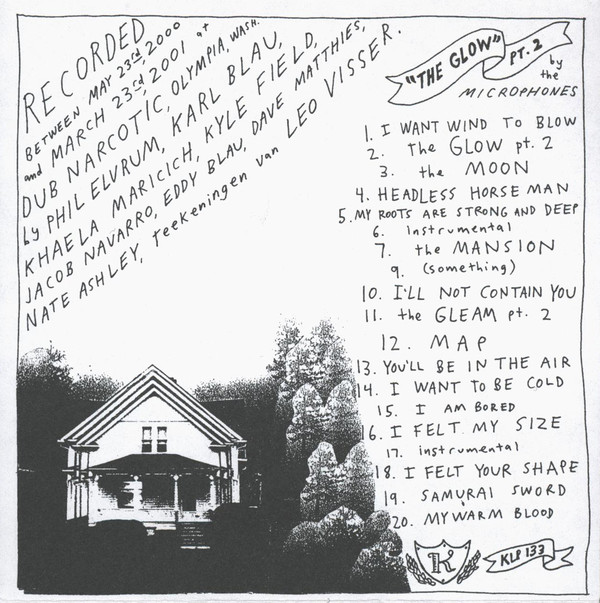 RECORDED
BETWEEN MAY 23rd, 2000
and MARCH 23rd, 2001 at
DUB NARCOTIC, OLYMPIA, WASH.
by PHIL ELVRUM, KARL BLAU,
KHAELA MARICICH, KYLE FIELD,
JACOB NAVARRO, EDDY BLAU, DAVE MATTHIES,
NATE ASHLEY, teekeningen van LEO VISSER.
"THE GLOW" PT. 2
by
the
MICROPHONES
1. I WANT WIND TO BLOW
2. the GLOW pt. 2
3. the MOON
4. HEADLESS HORSEMAN
5. MY ROOTS ARE STRONG AND DEEP
6. instrumental
7. the MANSION
9. (something)
10. I'LL NOT CONTAIN YOU
11. the GLEAM pt. 2
12. MAP
13. YOU'LL BE IN THE AIR
14. I WANT TO BE COLD
15. I AM BORED
16. I FELT MY SIZE
17. instrumental
18. I FELT YOUR SHAPE
19. SAMURAI SWORD
20. MY WARM BLOOD
K
KLP 133